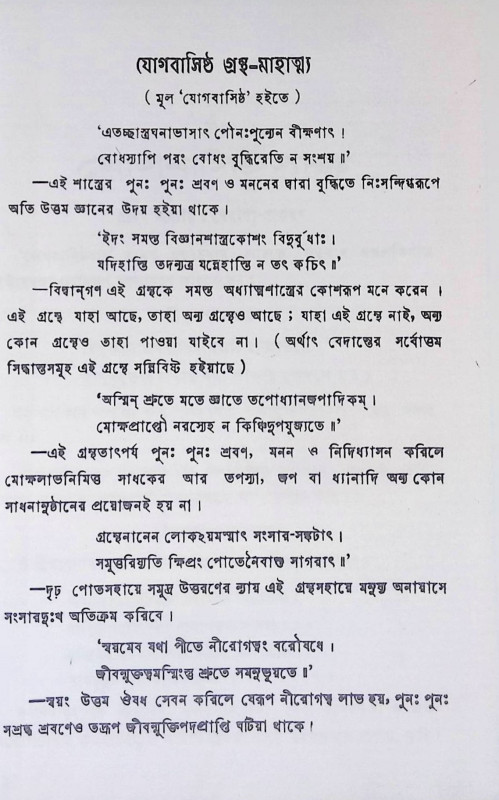 যোগবাসিষ্ঠ গ্রন্থ-মাহাত্ম্য
( মূল ‘যোগবাসিষ্ঠ’ হইতে )
‘এতচ্ছাস্ত্রঘনাভাসাৎ পৌনঃপুন্যেন বীক্ষণাৎ ৷
বোধস্যাপি পরং বোধং বুদ্ধিরেতি ন সংশয় ॥’
—এই শাস্ত্রের পুনঃ পুনঃ শ্রবণ ও মননের দ্বারা বুদ্ধিতে নিঃসন্দিগ্ধরূপে
অতি উত্তম জ্ঞানের উদয় হইয়া থাকে ৷
‘ইদং সমস্ত বিজ্ঞানশাস্ত্রকোশং বিদুর্বুধাঃ ৷
যদিহাস্তি তদন্যত্র যন্নেহাস্তি ন তৎ কচিৎ ॥’
—বিদ্বান্‌গণ এই গ্রন্থকে সমস্ত অধ্যাত্মশাস্ত্রের কোশরূপ মনে করেন ৷
এই গ্রন্থে যাহা আছে, তাহা অন্য গ্রন্থেও আছে ; যাহা এই গ্রন্থে নাই, অন্য
কোন গ্রন্থেও তাহা পাওয়া যাইবে না ৷ ( অর্থাৎ বেদান্তের সর্বোত্তম
সিদ্ধান্তসমূহ এই গ্রন্থে সন্নিবিষ্ট হইয়াছে )
‘অস্মিন্ শ্রুতে মতে জ্ঞাতে তপোধ্যানজপাদিকম্ ৷
মোক্ষপ্রাপ্তৌ নরস্যেহ ন কিঞ্চিদুপযুজ্যতে ॥’
—এই গ্রন্থতাৎপর্য পুনঃ পুনঃ শ্রবণ, মনন ও নিদিধ্যাসন করিলে
মোক্ষলাভনিমিত্ত সাধকের আর তপস্যা, জপ বা ধ্যানাদি অন্য কোন
সাধনানুষ্ঠানের প্রয়োজনই হয় না ৷
গ্রন্থেনানেন লোকহয়মস্মাৎ সংসার-সঙ্কটাৎ ৷
সমুত্তরিষ্যতি ক্ষিপ্রং পোতেনৈবাশু সাগরাৎ ॥’
—দৃঢ় পোতসহায়ে সমুদ্র উত্তরণের ন্যায় এই গ্রন্থসহায়ে মনুষ্য অনায়াসে
সংসারদুঃখ অতিক্রম করিবে ৷
‘স্বয়মেব যথা পীতে নীরোগত্বং বরৌষধে ৷
জীবন্মুক্তত্বমস্মিংস্তু শ্রুতে সমনুভূয়তে ॥’
—স্বয়ং উত্তম ঔষধ সেবন করিলে যেরূপ নীরোগত্ব লাভ হয়, পুনঃ পুনঃ
সশ্রদ্ধ শ্রবণেও তদ্রূপ জীবন্মুক্তিপদপ্রাপ্তি ঘটিয়া থাকে ৷